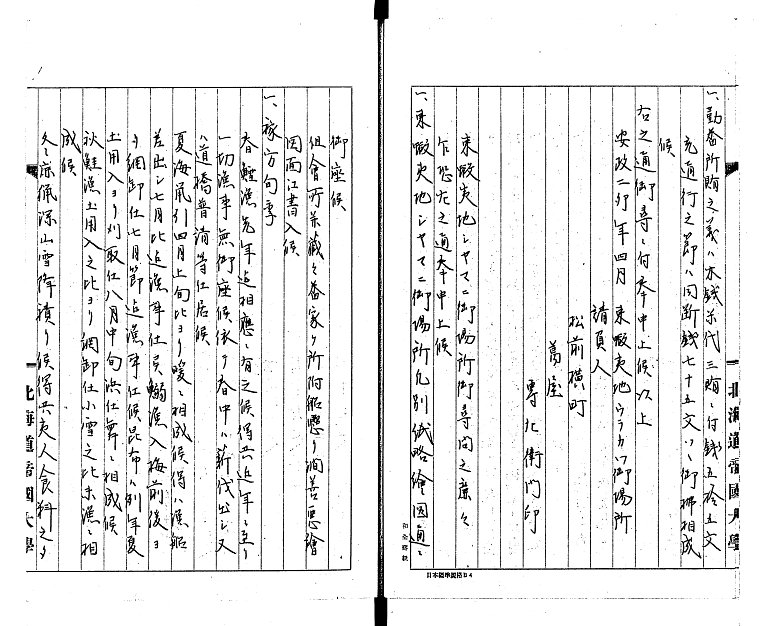 一、勤番所賄之義ハ木銭米代三賄ニ付銭五拾五文
充通行之節ハ同断銭七十五文ツヽ御拂相成
候
右之通御尋ニ付奉申上候以上
安政二卯年四月 東蝦夷地ウラカワ御場所
請負人
松前横町
萬屋
専右衛門印
東蝦夷地シヤマニ御場所御尋問之廉々
乍恐左之通奉申上候
一、東蝦夷地シヤマニ御場所凡別紙略繪図面ニ
御座候
但會所并藏々番家ケ所附船懸り澗善悪繪
図面江書入候
一、稼方旬季
春鯡漁先年迄相應ニ有之候得共近年ニ至り
一切漁事無御座候依り春中ハ薪伐出シ又
ハ道橋普請等仕居候
夏海鼠引四月上旬比ヨリ暖ニ相成候得ハ漁船
差出シ七月比迄漁事仕候鰯漁入梅前後ヨ
リ網卸仕七月節迄漁事仕候昆布ハ例年夏
土用入ヨリ刈取仕八月中旬迄仕舞ニ相成候
秋鮭漁土用入之比ヨリ網卸仕小雪之比末漁ニ相
成候
冬ニ床猟深山雪降積り候得共夷人食料之
北海道帝國大學
北海道帝國大學
日本標準規格B4